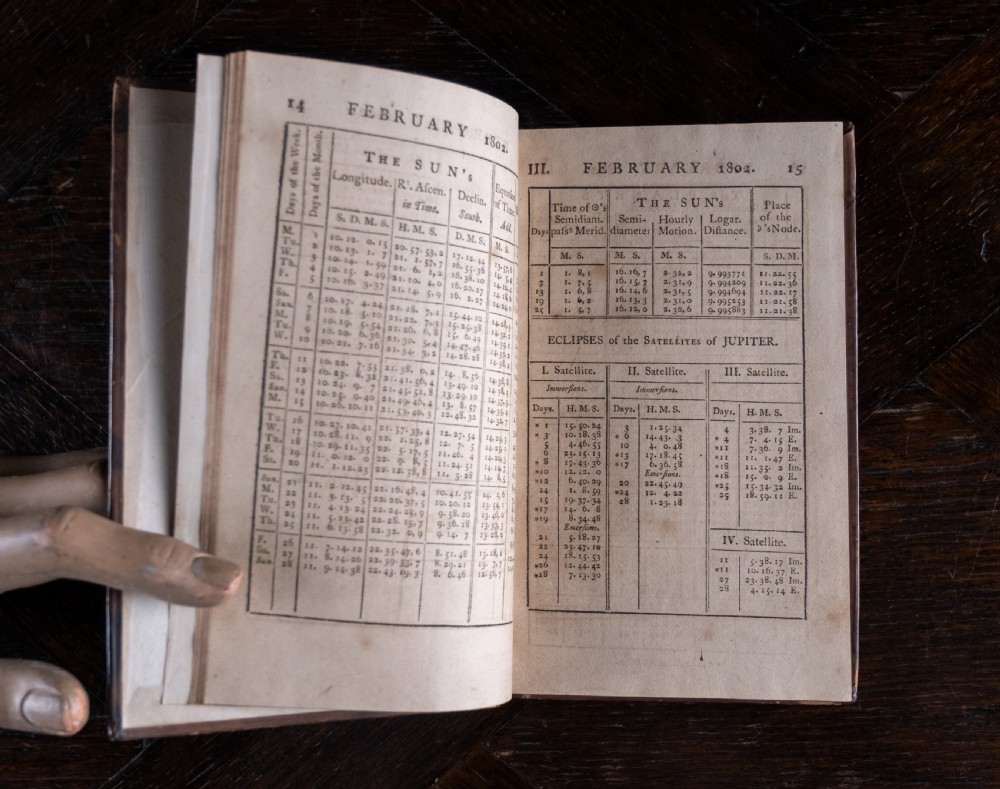 14 FEBRUARY 1802.
Days of the Week.
Days of the Month.
THE SUN's
Longitude. Rt. Ascen. in Time. Declin. South.
Add.
S. D. M. S. H. M. S. D. M. S. M. S.
M. 1 10. 12. 0. 15 20. 57. 53,2 17. 12. 44
Tu. 2 10. 13. 1. 7 21. 1. 57,7 16. 55. 36
W. 3 10. 14. 1. 59 21. 6. 1,2 16. 38. 10
Th. 4 10. 15. 2. 49 21. 10. 4,0 16. 20. 27
F. 5 10. 16. 3. 37 21. 14. 5,9 16. 2. 27
Sa. 6 10. 17. 4. 24 15. 44. 10
Su. 7 10. 18. 5. 10 15. 25. 38
M. 8 10. 19. 5. 54 21. 26. 6,8 15. 6. 49
Tu. 9 21. 30. 5,4 14. 47. 46
W. 10 10. 21. 7. 16 21. 34. 3,2 14. 28. 28
Th. 11 10. 22. 7. 55 21. 38. 0,2 14. 8. 56
F. 12 10. 23. 8. 32 21. 41. 56,4 13. 49. 10
Sa. 13 10. 24. 9. 7 21. 45. 51,8 13. 29. 10
Sun. 14 10. 25. 9. 40 21. 49. 46,4 13. 8. 57
M. 15 10. 26. 10. 11 21. 53. 40,3 12. 48. 32
Tu. 16 10. 27. 10. 41 21. 57. 33,4 12. 27. 54
W. 17 10. 28. 11. 9 22. 1. 25,8 12. 7. 5
Th. 18 10. 29. 11. 35 22. 5. 17,5 11. 46. 4
F. 19 22. 9. 8,5 11. 24. 51
Sa. 20 11. 1. 12. 23 22. 12. 58,8 11. 3. 28
Sun. 21 11. 2. 12. 45 22. 16. 48,4 10. 41. 55
M. 22 11. 3. 13. 5 22. 20. 37,5 10. 20. 12
Tu. 23 11. 4. 13. 24 9. 58. 20
W. 24 11. 5. 13. 42 9. 36. 18
Th. 25 11. 6. 13. 58 22. 32. 0,9 9. 14. 7
F. 26 11. 7. 14. 12 22. 35. 47,6 8. 51. 48
Sa. 27 11. 8. 14. 26 22. 39. 33,7 8. 29. 21
Sun. 28 11. 9. 14. 38 22. 43. 19,3 8. 6. 46
III. FEBRUARY 1802. 15
THE SUN's
Days Time of ☉'s Semidiam. pass§ Merid. Semi-diameter Hourly Motion. Logar. Distance. Place of the ☽'s Node.
M. S. M. S. M. S. S. D. M.
1 1. 8,1 16. 16,7 2. 32,2 9.993771 11. 22. 55
7 1. 7,5 16. 15,7 2. 31,9 9.994209 11. 22. 36
13 1. 6,8 16. 14,6 2. 31,5 9.994694 11. 22. 17
19 1. 6,2 16. 13,3 2. 31,0 9.995253 11. 21. 58
25 1. 5,7 16. 12,0 2. 30,6 9.995883 11. 21. 38
ECLIPSES of the SATELLITES of JUPITER.
I. Satellite.
Immersions.
Days. H. M. S.
* 1 15. 50. 24
* 3 10. 18. 38
5 4. 46. 55
6 23. 15. 13
* 8 17. 43. 36
*10 12. 12. 0
*12 6. 40. 29
14 1. 8. 59
15 19. 37. 34
*17 14. 6. 8
*19 8. 34. 48
Emersions.
21 5. 18. 27
22 23. 47. 10
24 18. 15. 53
*26 12. 44. 42
*28 7. 13. 30
II. Satellite.
Immersions.
Days. H. M. S.
3 1. 25. 34
* 6 14. 43. 3
10 4. 0. 48
*13 17. 18. 45
*17 6. 36. 58
Emersions.
20 22. 45. 49
*24 12. 4. 22
28 1. 23. 18
III. Satellite.
Days. H. M. S.
4 3. 38. 7 Im.
* 4 7. 4. 15 E.
*11 7. 36. 9 Im.
*11 11. 1. 47 E.
*18 11. 35. 2 Im.
*18 15. 0. 9 E.
*25 15. 34. 32 Im.
25 18. 59. 11 E.
IV. Satellite.
11 5. 38. 17 Im.
*11 10. 16. 37 E.
27 23. 38. 48 Im.
28 4. 15. 14 E.